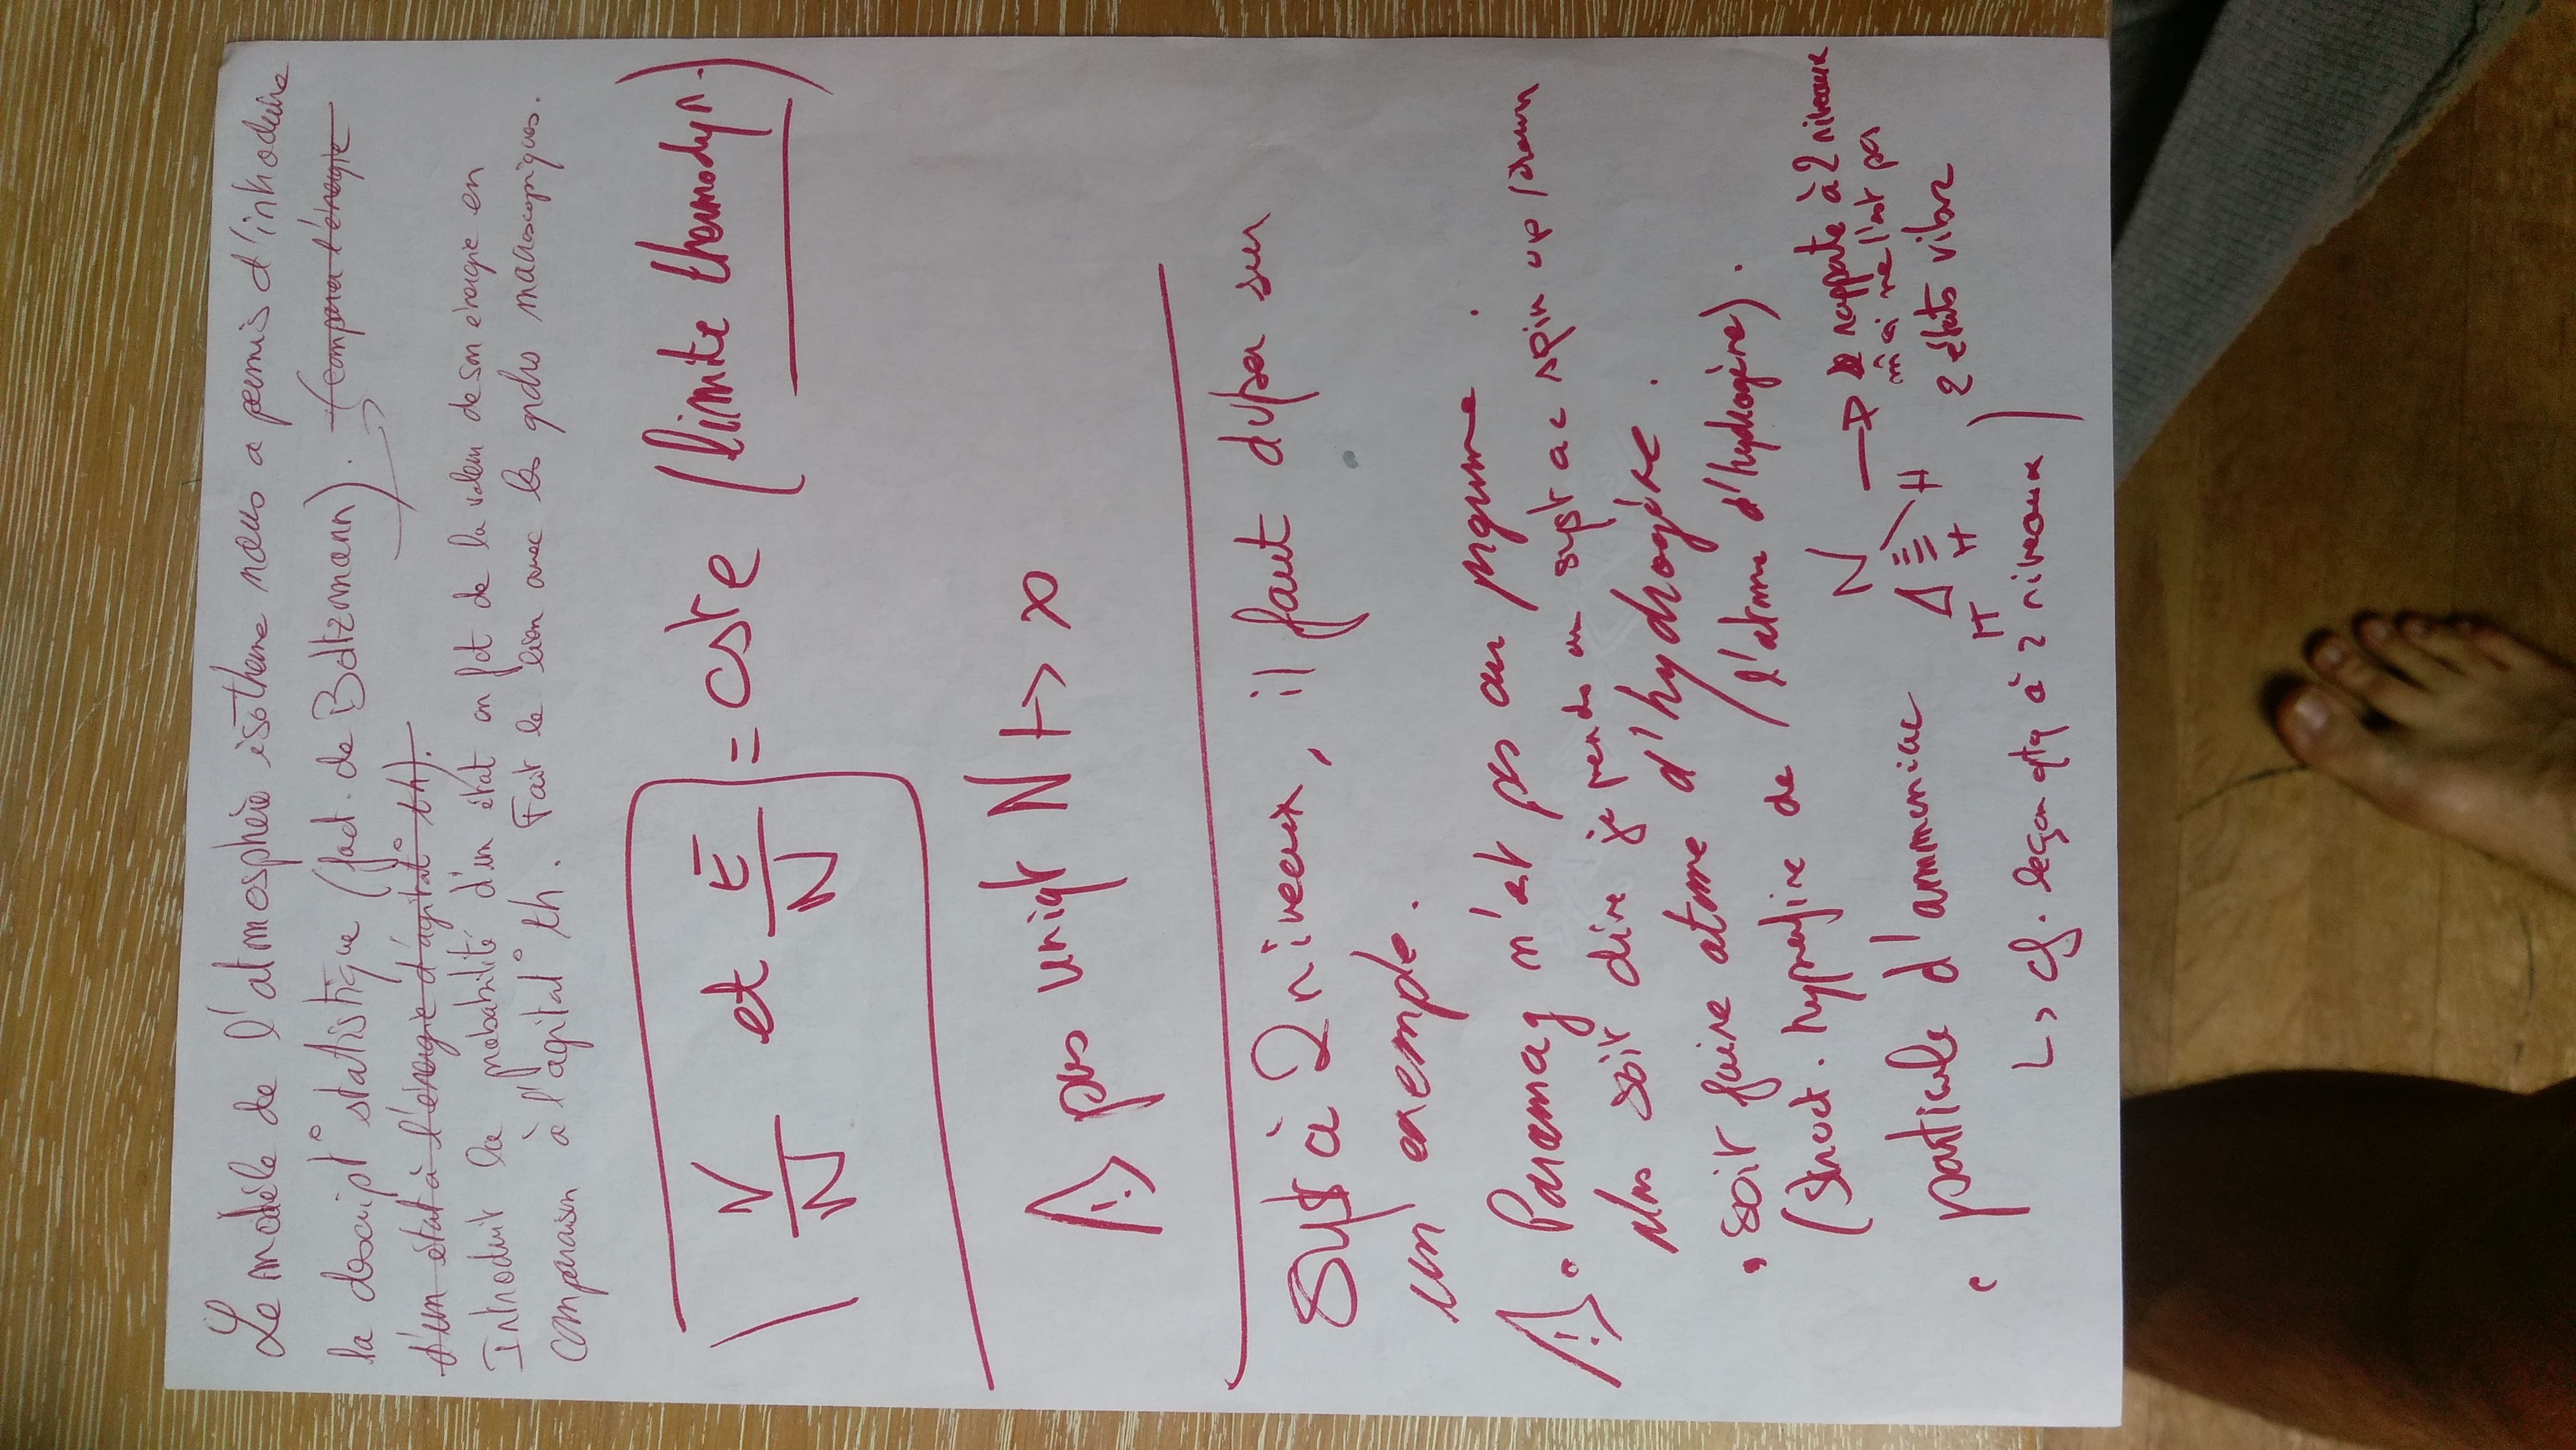 Le modèle de l'atmosphère isotherme nous a permis d'introduire
la descript° statistique (fact. de Boltzmann). (compara l'énergie
d'un état à l'énergie d'agitat° th).
Introduit la probabilité d'un état en fct de la valeur de son énergie en
comparaison à l'agitat° th. Fait le lien avec les grdrs macroscopiques.
( V/N et E/N = cste (limite thermodyn.)
⚠ pas uniqt N → ∞
Syst à 2 niveaux, il faut dvper sur
un exemple.
⚠ • Paramag n'est pas au prgrme.
soit dire je prends un syst ac spin up / down
• soit faire atome d'hydrogène.
(struct. hyperfine de l'atome d'hydrogène).
• particule d'ammoniac
N
H H H
→ rapporté à 2 niveaux
m̂ si ne l'est pas
2 états vibr
↳ cf. leçon qtq à 2 niveaux)